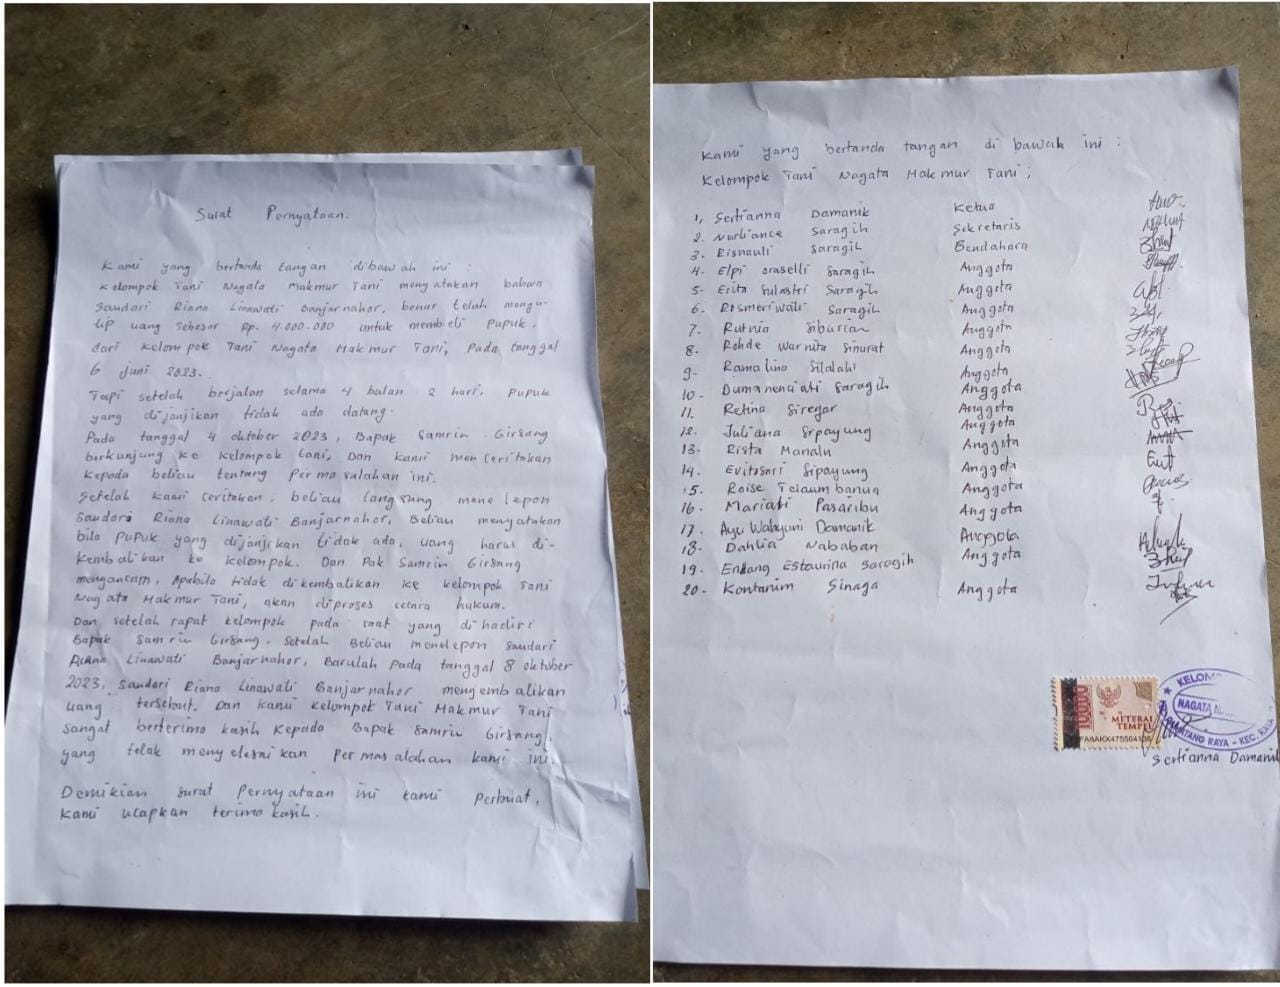 Surat Pernyataan.
Kami yang bertanda tangan dibawah ini :
Kelompok Tani Nagata Makmur Tani menyatakan bahwa
Saudari Riana Linawati Banjarnahor, benar telah mengu-
tip uang sebesar Rp. 4.000.000 untuk membeli pupuk,
dari Kelompok Tani Nagata Makmur Tani, Pada tanggal
6 Juni 2023.
Tapi setelah berjalan selama 4 bulan 2 hari, pupuk
yang dijanjikan tidak ada datang.
Pada tanggal 4 oktober 2023, Bapak Samrin Girsang
berkunjung ke kelompok tani, Dan kami menceritakan
kepada beliau tentang permasalahan ini.
Setelah kami ceritakan, beliau langsung menelepon
Saudari Riana Linawati Banjarnahor, Beliau menyatakan
bila pupuk yang dijanjikan tidak ada, uang harus di-
kembalikan ke kelompok. Dan Pak Samrin Girsang
mengancam, Apabila tidak dikembalikan ke kelompok Tani
Nagata Makmur Tani, akan diproses secara hukum.
Dan setelah rapat kelompok pada saat yang dihadiri
Bapak Samrin Girsang, setelah Beliau menelepon saudari
Riana Linawati Banjarnahor, Barulah pada tanggal 8 oktober
2023, Saudari Riana Linawati Banjarnahor mengembalikan
uang tersebut. Dan kami Kelompok Tani Makmur Tani
sangat berterima kasih kepada Bapak Samrin Girsang,
yang telah menyelesaikan permasalahan kami ini.
Demikian surat pernyataan ini kami perbuat,
kami ucapkan terima kasih.
Kami yang bertanda tangan di bawah ini :
Kelompok Tani Nagata Makmur Tani;
1, Sertianna Damanik Ketua
2. Nurliance Saragih Sekretaris
3. Risnauli Saragih Bendahara
4. Elpi Saragih Anggota
5. Erita Sulastri Saragih Anggota
6. Rosmeriwati Saragih Anggota
7. Rutnia Siburian Anggota
8. Rohde Warnita Sinurat Anggota
9. Ramalino Silalahi Anggota
10. Dumanenciati Saragih Anggota
11. Retina Siregar Anggota
12. Juliana Sipayung Anggota
13. Rista Manalu Anggota
14. Evitasari Sipayung Anggota
15. Roise Telaumbanua Anggota
16. Mariati Pasaribu Anggota
17. Ayu Wahyuni Damanik Anggota
18. Dahlia Nababan Anggota
19. Endang Estaurina Saragih Anggota
20. Kontarim Sinaga Anggota
10000
METERAI
TEMPEL
KELOM
NAGATA M
RAYA - KEC. RAYA
Sertianna Damanik